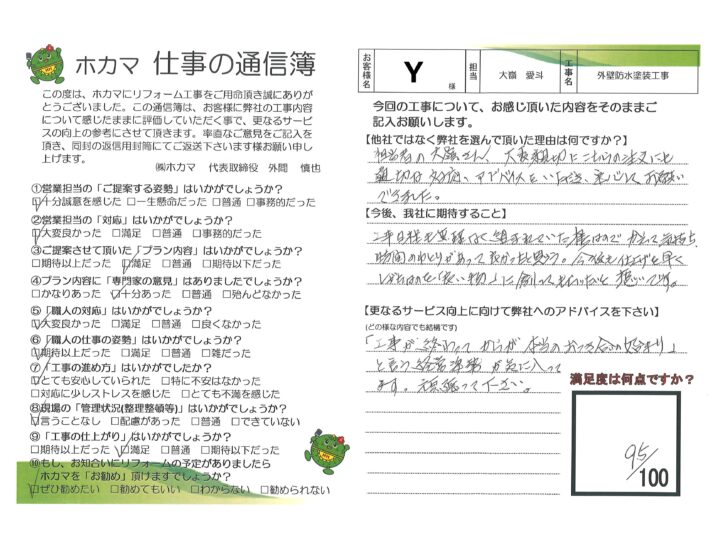 ホカマ 仕事の通信簿
この度は、ホカマにリフォーム工事をご用命頂き誠にありが
とうございました。この通信簿は、お客様に弊社の工事内容
について感じたままに評価していただく事で、更なるサービ
スの向上の参考にさせて頂きます。率直なご意見をご記入を
頂き、同封の返信用封筒にてご返送下さいます様お願い申
し上げます。
㈱ホカマ 代表取締役 外間 慎也
①営業担当の「ご提案する姿勢」はいかがでしょうか?
☑十分誠意を感じた □一生懸命だった □普通 □事務的だった
②営業担当の「対応」はいかがでしょうか?
☑大変良かった □満足 □普通 □事務的だった
③ご提案させて頂いた「プラン内容」はいかがでしょうか?
□期待以上だった ☑満足 □普通 □期待以下だった
④プラン内容に「専門家の意見」はありましたでしょうか?
□かなりあった ☑十分あった □普通 □殆んどなかった
⑤「職人の対応」はいかがでしょうか?
☑大変良かった □満足 □普通 □良くなかった
⑥「職人の仕事の姿勢」はいかがでしょうか?
☑期待以上だった □満足 □普通 □雑だった
⑦「工事の進め方」はいかがでしたか?
☑とても安心していられた □特に不安はなかった
□対応に少しストレスを感じた □とても不満を感じた
⑧現場の「管理状況(整理整頓等)」はいかがでしょうか?
☑言うことなし □配慮があった □普通 □できていない
⑨「工事の仕上がり」はいかがでしょうか?
□期待以上だった ☑満足 □普通 □期待以下だった
⑩もし、お知合いにリフォームの予定がありましたら
ホカマを「お勧め」頂けますでしょうか?
☑ぜひ勧めたい □勧めてもいい □わからない □勧められない
お客様名 Y 様 担当 大嶺 愛斗 工事名 外壁防水塗装工事
今回の工事について、お感じ頂いた内容をそのままご
記入お願いします。
【他社ではなく弊社を選んで頂いた理由は何ですか?】
担当者の大嶺さんが、大変親切にこちらの注文にも
適切な対応、アドバイスをいただき、安心してお願い
できました。
【今後、我社に期待すること】
工事日程も無理なく組まれていた様なので
時間のゆとりがあって良かったと思う。今後も仕上げを早く
「良い物」に
【更なるサービス向上に向けて弊社へのアドバイスを下さい】
(どの様な内容でも結構です)
「工事が終わってからが本当のおつき合いの始まり」
と言う経営姿勢が気に入って
ます。頑張って下さい。
満足度は何点ですか?
95/100